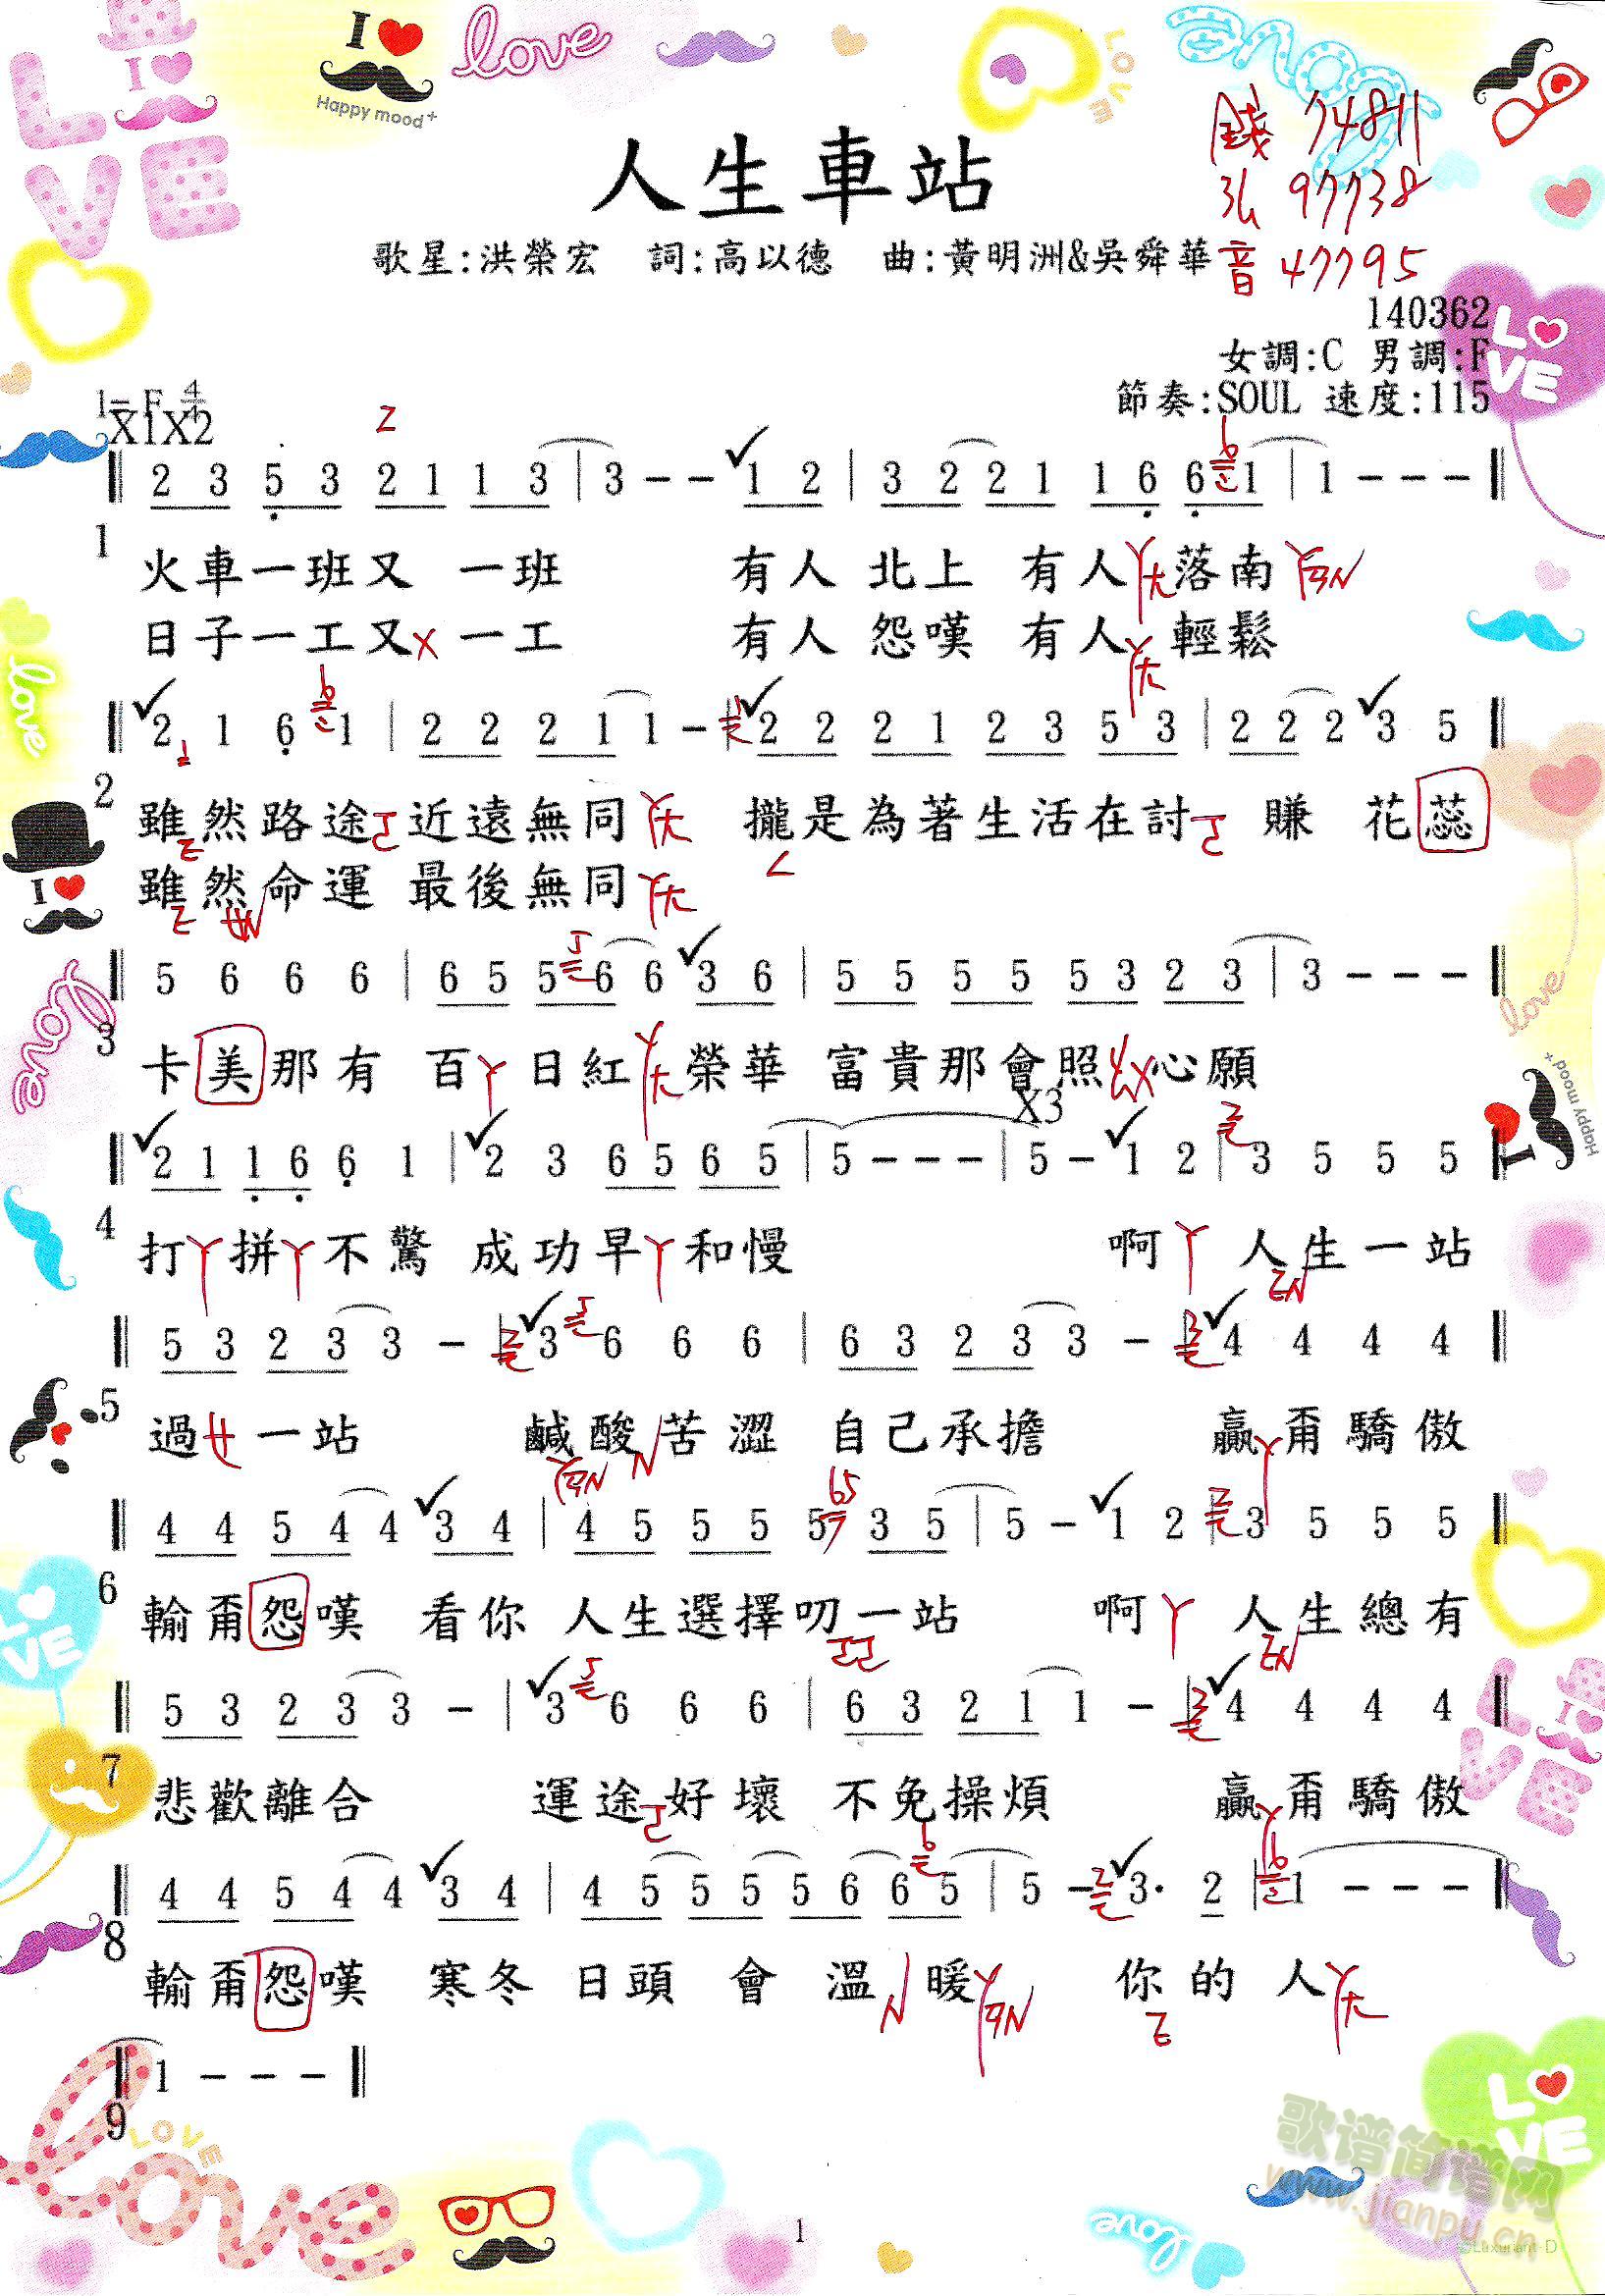 I ♥
Happy mood+
love
LOVE
人生車站
錢 74811
弘 97738
音 47795
歌星:洪榮宏 詞:高以德 曲:黃明洲&吳舜華
140362
女調:C 男調:F
節奏:SOUL 速度:115
1=F 4/4
X1X2
2 3 5 3 2 1 1 3 | 3 - - 1 2 | 3 2 2 1 1 6 6 1 | 1 - - -
1
火車一班又 一班 有人 北上 有人 落南
日子一工又 一工 有人 怨嘆 有人 輕鬆
2 1 6 1 | 2 2 2 1 1 - | 2 2 2 1 2 3 5 3 | 2 2 2 3 5
2
雖然路途 近遠無同 攏是為著生活在討 賺 花蕊
雖然命運 最後無同
5 6 6 6 | 6 5 5 6 6 3 6 | 5 5 5 5 5 3 2 3 | 3 - - -
3
卡美那有 百 日紅 榮華 富貴那會照 心願
X3
2 1 1 6 6 1 | 2 3 6 5 6 5 | 5 - - - | 5 - 1 2 | 3 5 5 5
4
打 拼 不驚 成功早 和慢 啊 人生一站
5 3 2 3 3 - | 3 6 6 6 | 6 3 2 3 3 - | 4 4 4 4
5
過 一站 鹹酸 苦澀 自己承擔 贏 甭驕傲
4 4 5 4 4 3 4 | 4 5 5 5 5 3 5 | 5 - 1 2 | 3 5 5 5
6
輸甭怨嘆 看你 人生選擇叨一站 啊 人生總有
5 3 2 3 3 - | 3 6 6 6 | 6 3 2 1 1 - | 4 4 4 4
7
悲歡離合 運途 好壞 不免操煩 贏 甭驕傲
4 4 5 4 4 3 4 | 4 5 5 5 5 6 6 5 | 5 - 3· 2 | 1 - - -
8
輸甭怨嘆 寒冬 日頭 會 溫 暖 你的 人
1 - - -
9
LOVE
love
1
歌谱简谱网
www.jianpu.cn